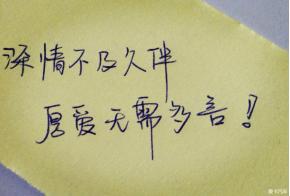 深情不及久伴
厚爱无需多言！